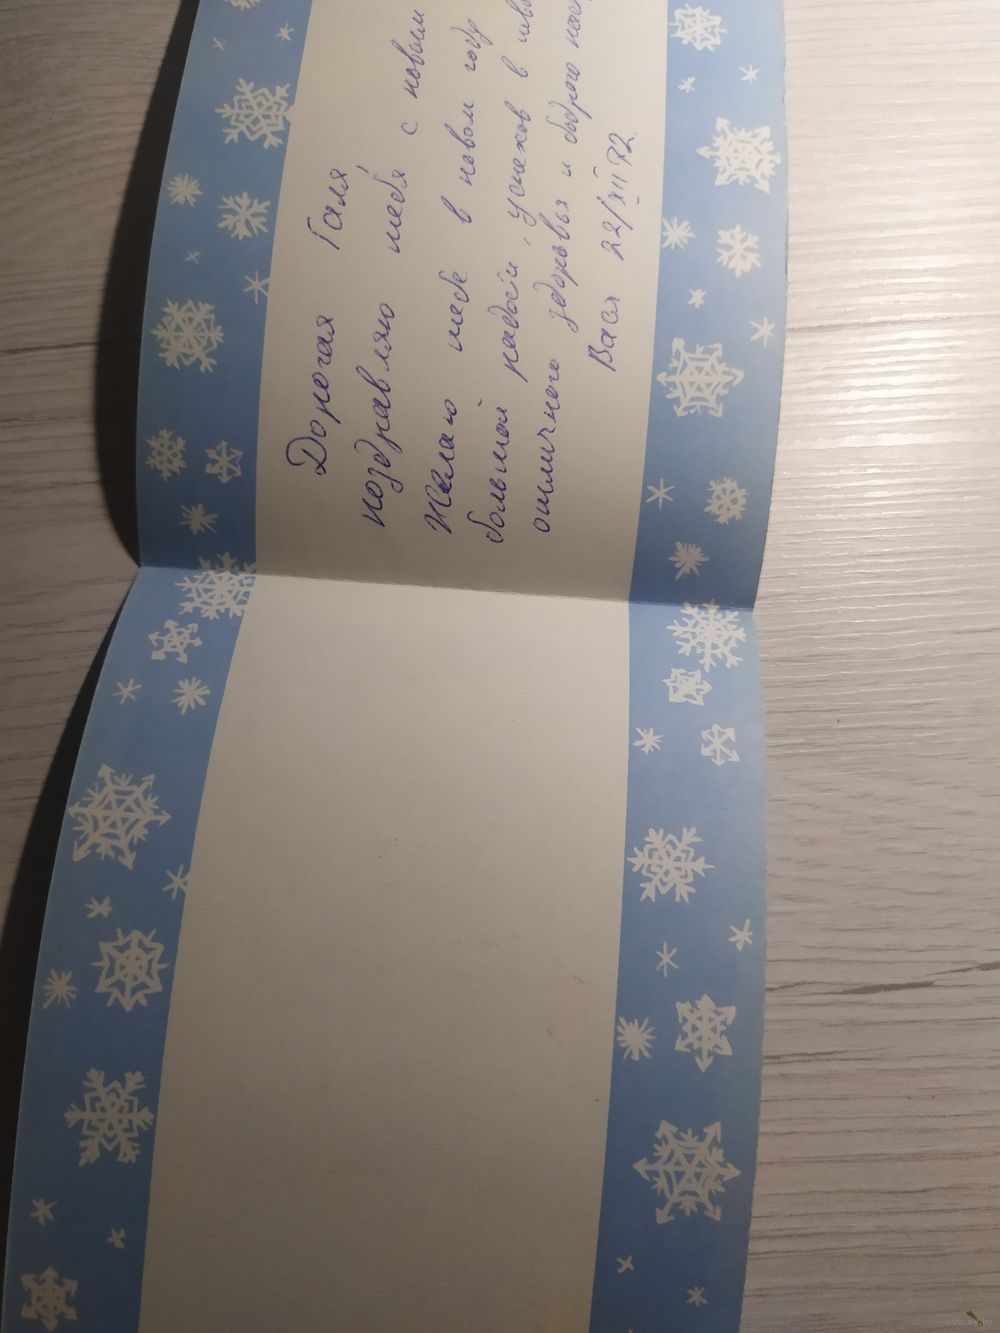 Дорогая Галя!
поздравляю тебя с новым
Желаю тебе в новом году
большой радости, успехов в
отличного здоровья и бодрого
Вася 22/XII 72.